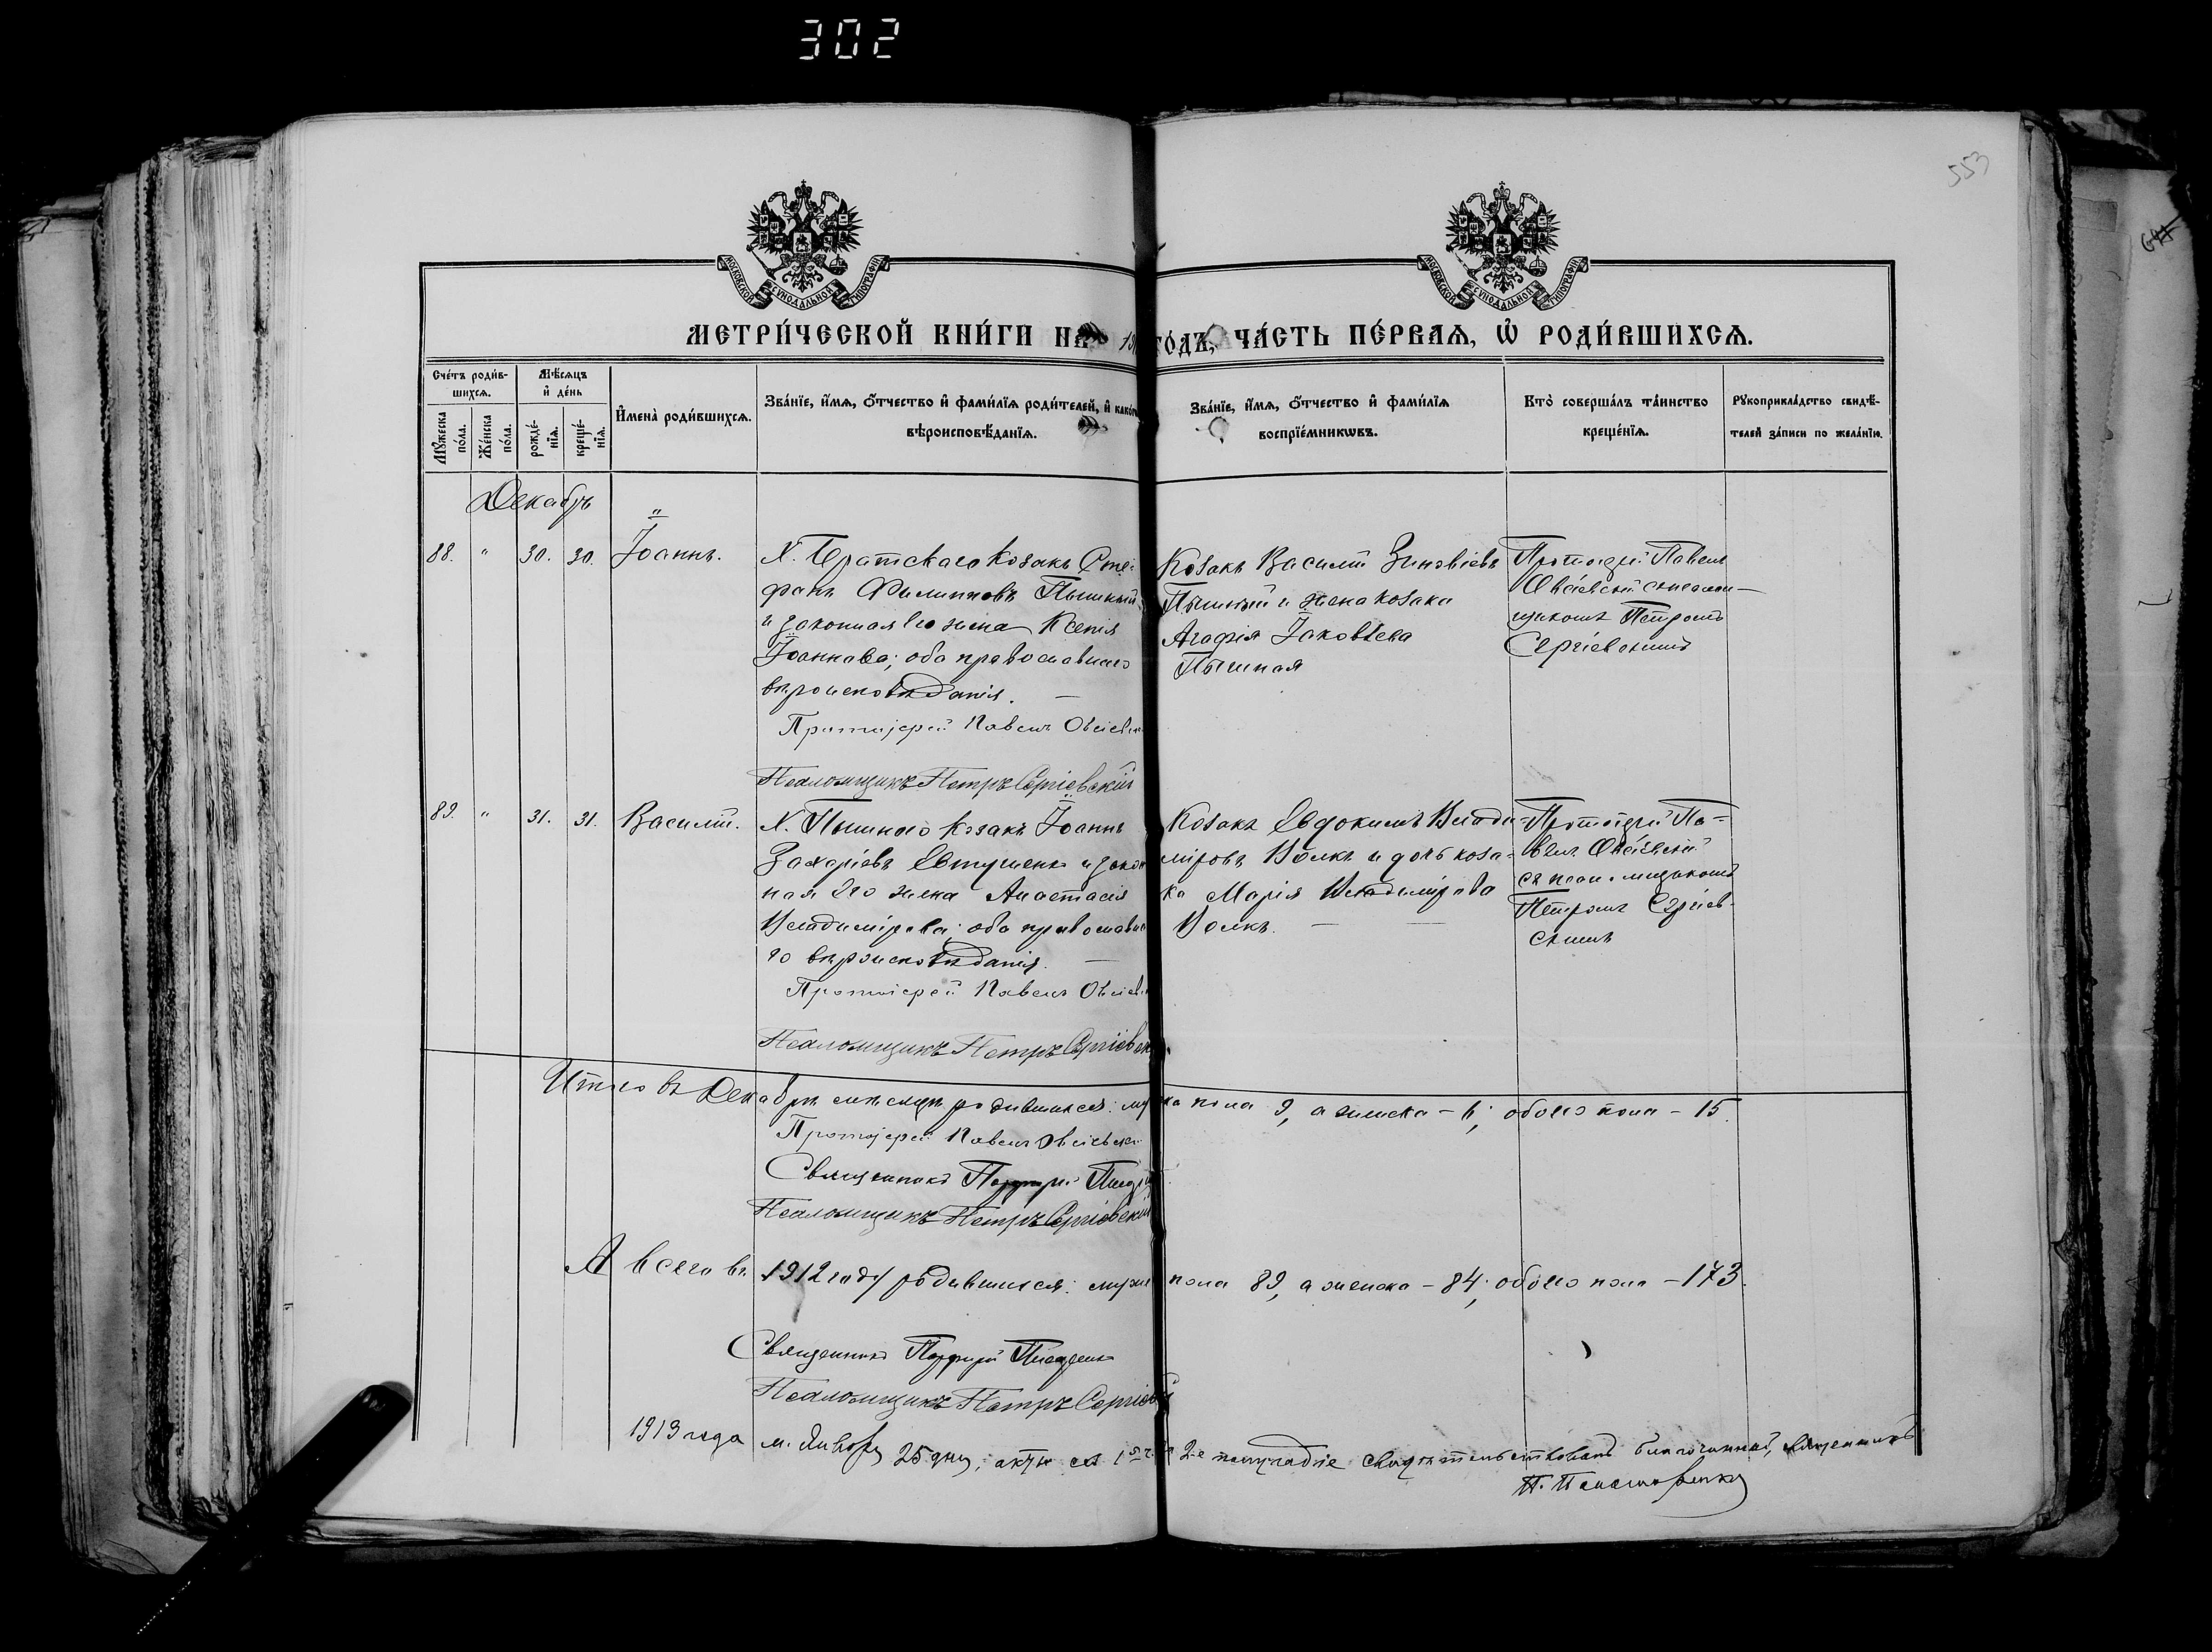 302
553
МОСКОВСКОЙ СУНОДАЛЬНОЙ ТИПОГРАФІИ
МОСКОВСКОЙ СУНОДАЛЬНОЙ ТИПОГРАФІИ
МЕТРИ́ЧЕСКОЙ КНИ́ГИ НА 19 ГО́ДЪ, ЧА́СТЬ ПЕ́РВАѦ, Ѡ҆ РОДИ́ВШИХСѦ.
Сче́тъ роди́в-
шихсѧ.
Мꙋ́жеска по́ла.
Же́нска по́ла.
Мѣ́сѧцъ
и҆ де́нь
рожде́-
нїѧ.
креще́-
нїѧ.
И҆мена̀ роди́вшихсѧ.
Зва́нїе, и҆́мѧ, о҆́тчество и҆ фами́лїѧ роди́телей, и҆ како́гѡ
вѣроисповѣ́данїѧ.
Зва́нїе, и҆́мѧ, о҆́тчество и҆ фами́лїѧ
воспрїе́мникѡвъ.
Кто̀ соверша́лъ та́инство
креще́нїѧ.
Рꙋкоприкла́дство свидѣ́-
телей за́писи по жела́нїю.
Декабрь
88. " 30. 30. Іоаннъ.
Х. Братскаго козакъ Сте-
фанъ Филипповъ Пышный
и законная его жена Ксенія
Іоаннова; оба православнаго
вѣроисповѣданія. —
Протоіерей Павелъ Овсіевскій
Псаломщикъ Петръ Сергіевскій
Козакъ Василій Зиновіевъ
Пышный и жена козака
Агафія Іаковлева
Пышная
Протоіерей Павелъ
Овсіевскій съ псалом-
щикомъ Петромъ
Сергіевскимъ
89. " 31. 31. Василій.
Х. Пышнаго козакъ Іоаннъ
Захаріевъ Евтушенко и закон
ная его жена Анастасія
Владимірова; оба православна
го вѣроисповѣданія. —
Протоіерей Павелъ Овсіевск
Псаломщикъ Петръ Сергіевск
Козакъ Евдокимъ Влади-
міровъ Волкъ и дочь коза-
ка Марія Владимірова
Волкъ. — —
Протоіерей Па-
велъ Овсіевскій
съ псаломщикомъ
Петромъ Сергіев-
скимъ
Итого въ Декабрѣ мѣсяцѣ родившихся: муж ка пола 9, а женска – 6; обоего пола – 15.
Протоіерей Павелъ Овсіевскі
Священникъ Порфирій
Псаломщикъ Петръ Сергіевскій
А всего въ 1912 году родившихся: муже пола 89, а женска – 84; обоего пола – 173.
Священникъ Порфирій
Псаломщикъ Петръ Сергіев
1913 года м. Января 25 дня, акты за 2-е полугодіе свидѣтельствовалъ благочинный, священникъ